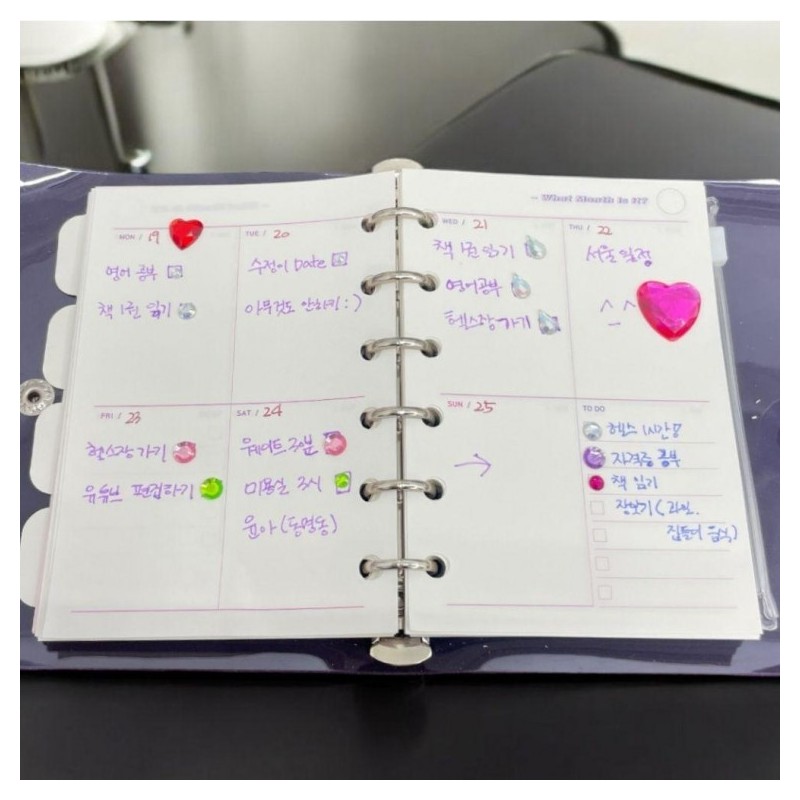 ~ What Month is it?
MON / 19
영어 공부
책 1권 읽기
TUE / 20
수정이 Date
아무것도 안하긔 :)
WED / 21
책 1권 읽기
영어공부
헬스장 가기
THU / 22
서울 일정
^_^
FRI / 23
헬스장 가기
유튜브 편집하기
SAT / 24
웨이트 30분
미용실 2시
윤아 (동명동)
SUN / 25
→
TO DO
헬스 1시간!!
자격증 공부
책 읽기
장보기 ( 과일,
집들이 음식)